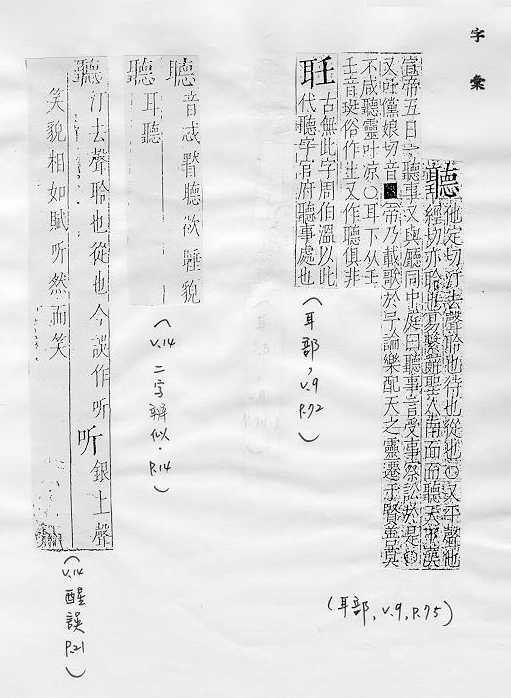 字彙
聽 他定切汀去聲聆也待也從也○又平聲他
經切亦聆也易繫辭聖人南面而聽天下漢
宣帝五日一聽事又與廳同中庭曰聽事言受事察訟於是○
又叶儻娘切音 帝乃載歌於予論樂配天之靈遷于賢善莫
不咸聽靈叶凉○耳下从壬
壬音珽俗作生又作聽俱非
耵 古無此字周伯溫以此
代聽字官府聽事處也
(耳部, v.9 P.72)
(耳部, v.9, P.75)
聽 音忒
聽欲睡貌
聽 耳聽
(v.14 二字辨似. P.14)
聽 汀去聲聆也從也今談作听 听 銀上聲
笑貌相如賦听然而笑
(v.14 醒誤 P.21)